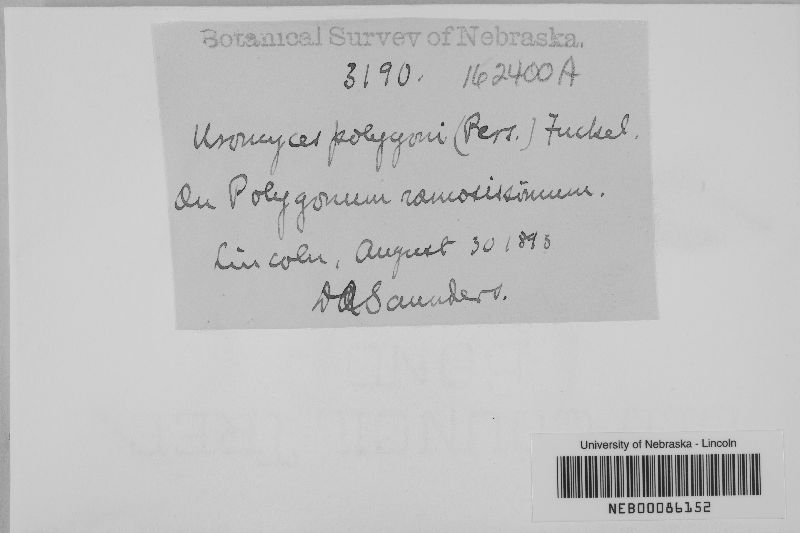 Botanical Survey of Nebraska.
3190. 162400A
Uromyces polygoni (Pers.) Fuckel.
On Polygonum ramosissimum.
Lincoln, August 30 1893
DA Saunders.
University of Nebraska - Lincoln
NEB00086152